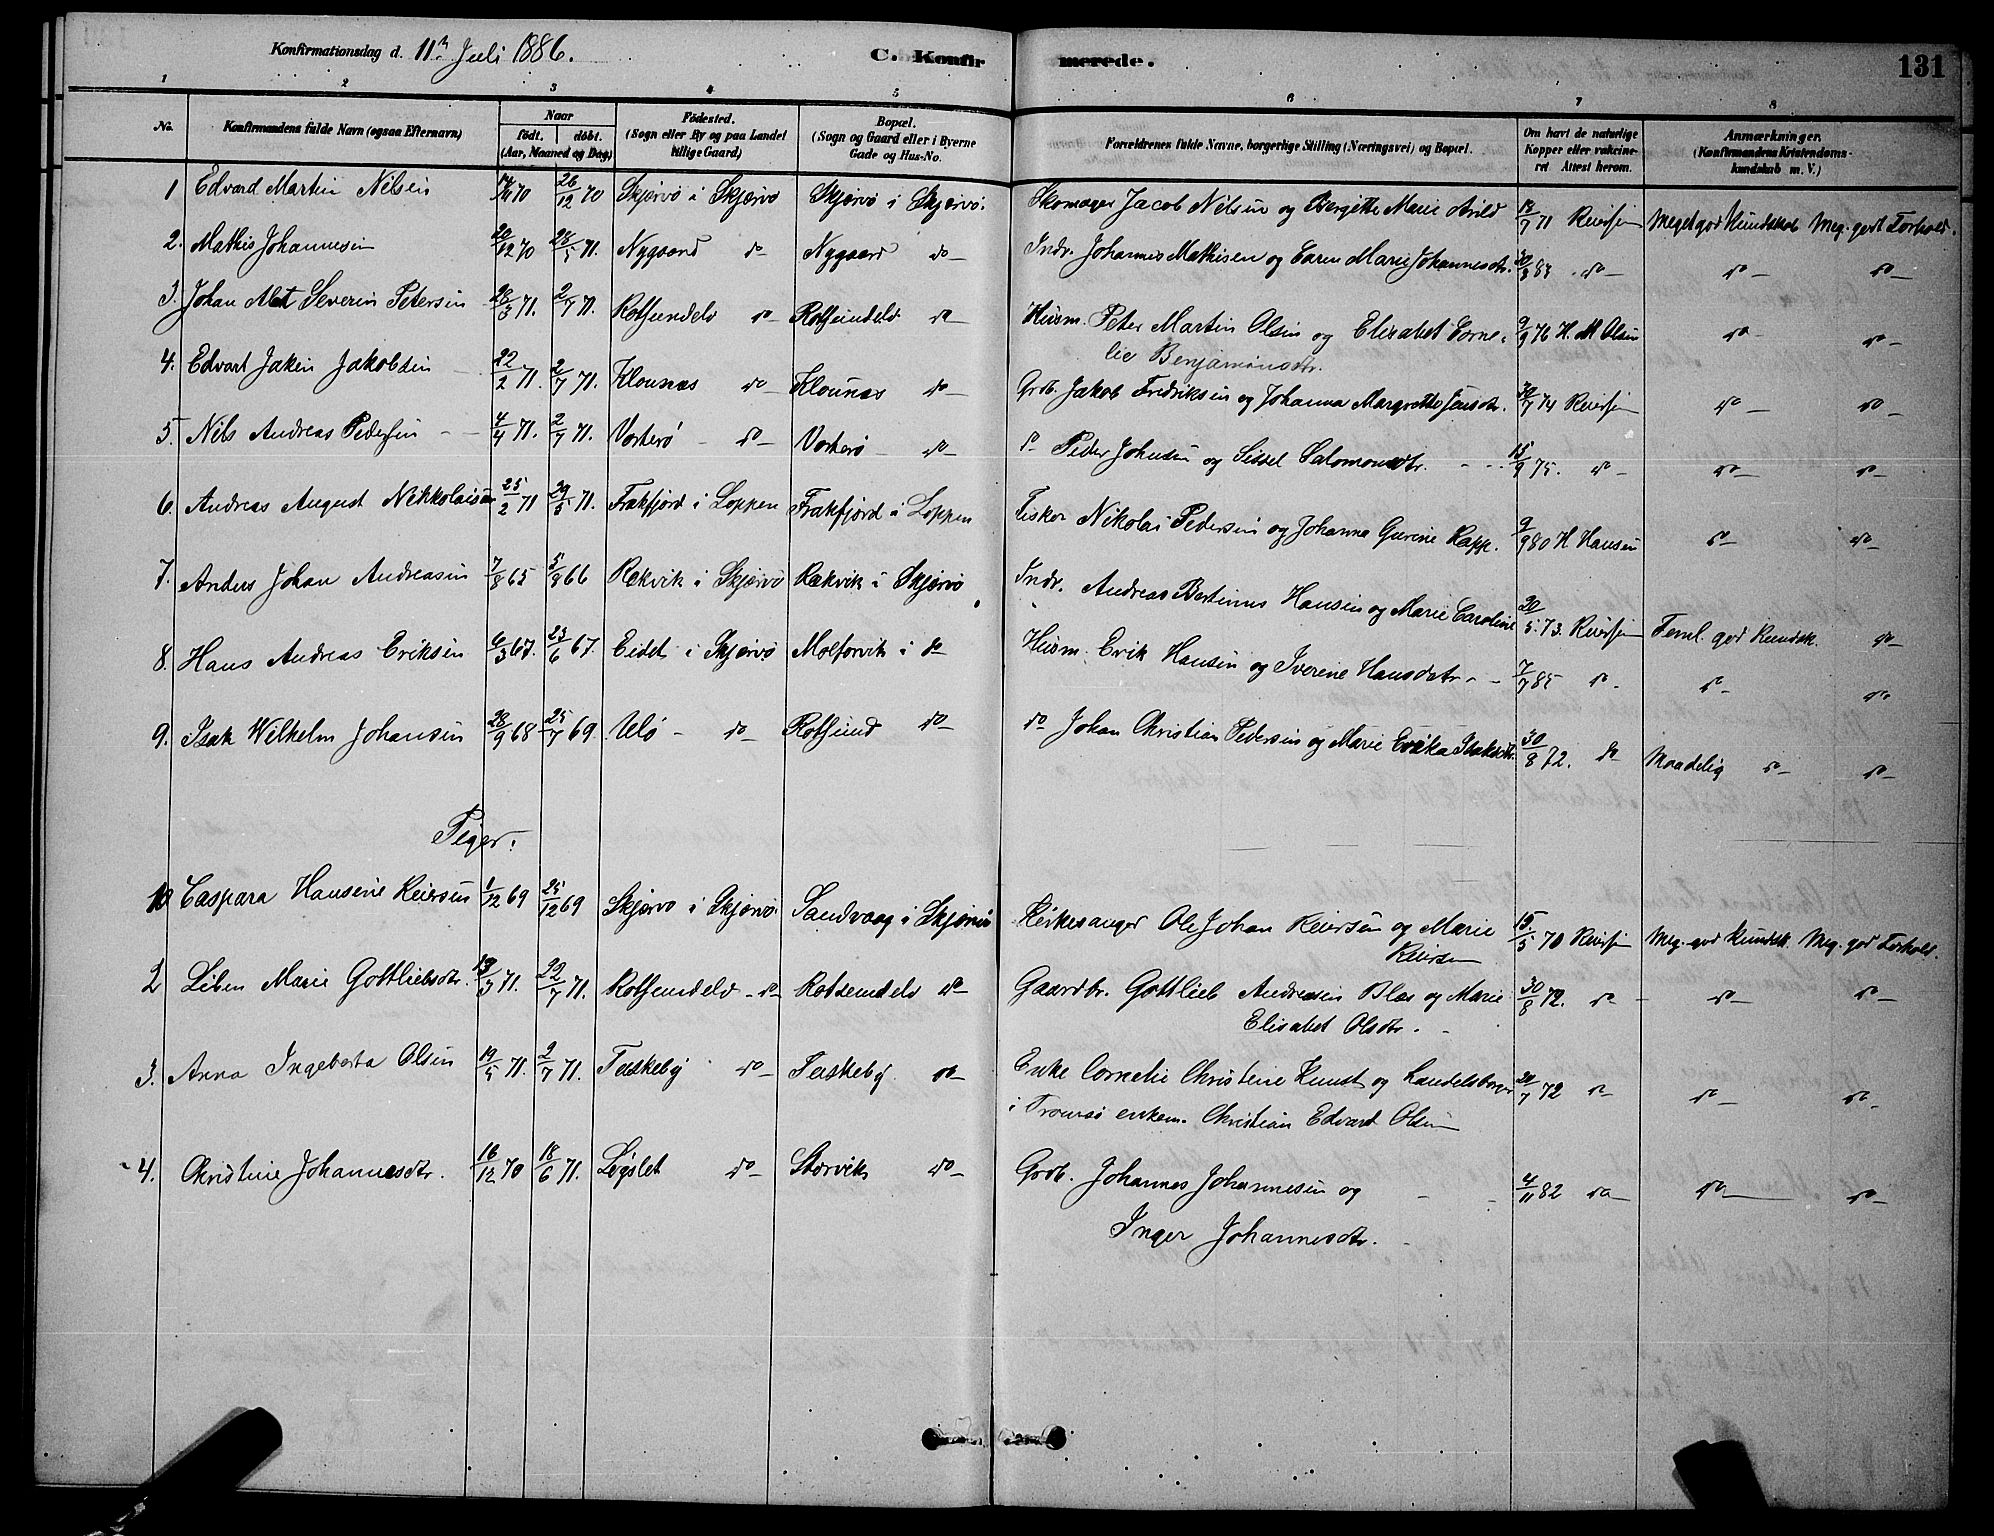 Konfirmationsdag d. 11te Juli 1886. C. Konfirmerede. 131
1 2 3 4 5 6 7 8
No. Konfirmandens fulde Navn (ogsaa Efternavn) Naar født. døbt. (Aar, Maaned og Dag) Fødested. (Sogn eller By og paa Landet tillige Gaard) Bopæl. (Sogn og Gaard eller i Byerne Gade og Hus-No. Forældrenes fulde Navne, borgerlige Stilling (Næringsvei) og Bopæl. Om havt de naturlige Kopper eller vakcineret Attest herom. Anmærkninger. (Konfirmandens Kristendomskundskab m. V.)
1 Edvard Martin Nilsen 70 26/12 70 Skjervø i Skjervø Skjervø i Skjervø. Skomager Jacob Nilsen og Bergitte Marie Arild 13/7 71 Reiersen Meget god Kundskab Meg. godt Forhold.
2. Mathis Johannesen 20/12 70 28/5 71. Nygaard do Nygaard do Indr. Johannes Mathisen og Caren Marie Johannesdtr. 83 do do do
3. Johan Alet Severin Petersen 28/3 71. 2/7 71. Rotsundelv do Rotsundelv do Huusm. Peter Martin Olsen og Elisabet Corne-
lie Benjaminsdtr. 9/9 76 H. M. Olsen do do
4. Edvart Jakin Jakobsen 22/2 71. 2/7 71. Klounæs do Klounæs do Grdb. Jakob Fredriksen og Johanna Margrethe Jensdtr. 30/7 74 Reiersen do do
5. Nils Andreas Pedersen 4/4 71. 2/7 71. Vorterø do Vorterø do do Peder Johnsen og Sissel Salomonsdtr. 15/9 75. do do do
6. Andreas August Nikkolaisen 25/2 71 29/5 71. Frakfjord i Loppen Frakfjord i Loppen Fisker Nikolai Pedersen og Johanna Gurine Rapp. 9/9 80 H Hansen do do
7. Anders Johan Andreasen 7/8 65 5/8 66 Rekvik i Skjervø Rekvik i Skjervø Indr. Andreas Bertinus Hansen og Marie Caroline 20/5 73. Reiersen Teml. god Kundsk. do
8. Hans Andreas Eriksen 6/3 67. 23/6 67. Eidet i Skjervø Molforvik i do Huusm. Erik Hansen og Iverine Hansdatr 7/7 85 do do do
9. Isak Wilhelm Johansen 28/9 68 25/7 69. Ulø do Rotsund do do Johan Christian Pedersen og Marie Erika Isaksdtr. 30/8 72. do Maadelig do do
Piger.
10 Caspara Hansene Reiersen 1/12 69 25/12 69 Skjervø i Skjervø Sandvaag i Skjervø Kirkesanger Ole Johan Reiersen og Marie
Reiersen 15/5 70 Reiersen Meg. god Kundsk. Meg. god Forhold.
2 Liben Marie Gottliebsdtr. 13/3 71. 22/7 71. Rotsundelv do Rotsundelv do Gaardbr. Gottlieb Andreasen Blæs og Marie
Elisabet Olsdtr. 30/8 72. do do do
3. Anna Ingeborta Olsen 19/5 71. 2/7 71. Taskeby do Taskeby do Enke Cornelie Christine Kunst og Handelsborger
i Tromsø enkem. Christian Edvard Olsen 20/7 72 do do do
4. Christine Johannesdtr. 16/12 70 18/6 71. Løgslet do Storvik do Grdb. Johannes Johannesen og
Inger Johannesdtr. 4/11 82 do do do